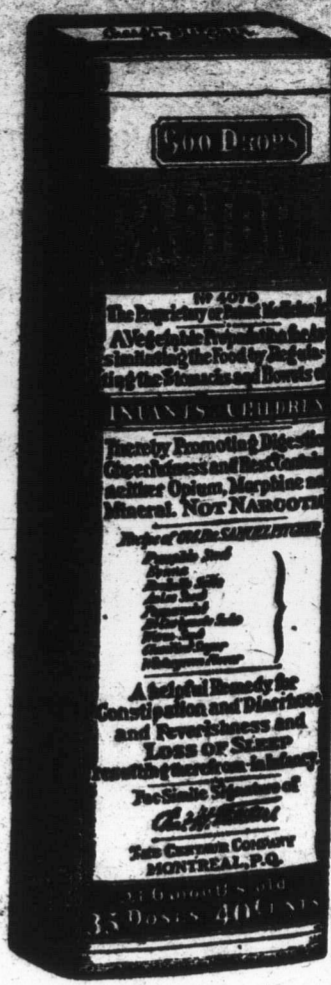 900 DROPS
CASTORIA
No 4079
The Proprietary or Patent Medicine
A Vegetable Preparation for As
similating the Food by Regula
ting the Stomachs and Bowels of
INFANTS CHILDREN
Thereby Promoting Digestion
Cheerfulness and Rest Contains
neither Opium, Morphine nor
Mineral. NOT NARCOTIC
Recipe of Old Dr. SAMUEL PITCHER
Pumpkin Seed
Rochelle Salts
Anise Seed
Peppermint
Worm Seed
Clarified Sugar
Wintergreen Flavor
A helpful Remedy for
Constipation and Diarrhoea
and Feverishness and
LOSS OF SLEEP
resulting therefrom in Infancy.
Fac-Simile Signature of
Chas. H. Fletcher
THE CENTAUR COMPANY
MONTREAL, P.Q.
At 6 months old
35 DOSES 40 CENTS